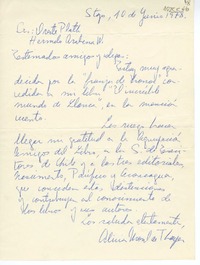 Stgo, 10 de Junio 1973.
Sr.: Oreste Plath
Hernán Arabena W.
Estimados amigos y otros:
Estoy muy agra-
decida por la "franja de honor" con-
cedida a mi libro "El increíble
mundo de Llanca", en la mención
cuento.
Les ruego hacer
llegar mi gratitud a la Agrupación
Amigos del Libro, a la S. de
tores de Chile y a las tres editoriales
Nascimento, Pacífico y
que conceden esta
y contribuyen al conocimiento de
los libros y sus autores.
Los saluda atentamente,